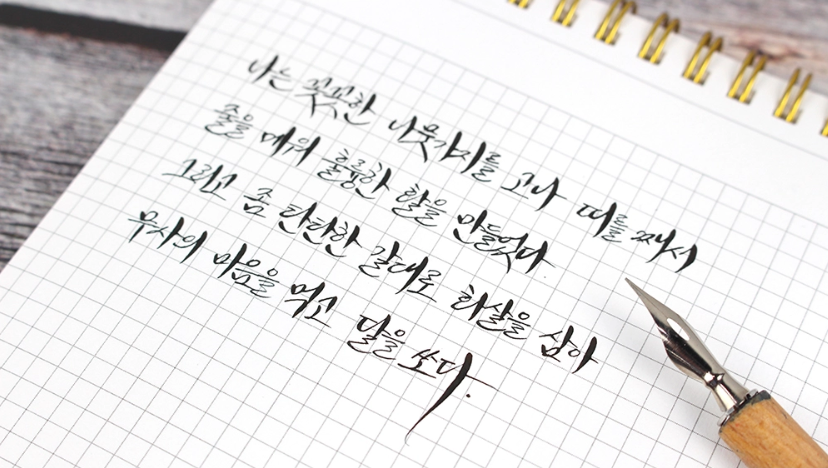 나는 꼿꼿한 나뭇가지를 고나 띠를 째서
줄을 매워 훌륭한 활을 만들었다
그리고 좀 탄탄한 갈대로 화살을 삼아
무사의 마음을 먹고 달을 쏘다.